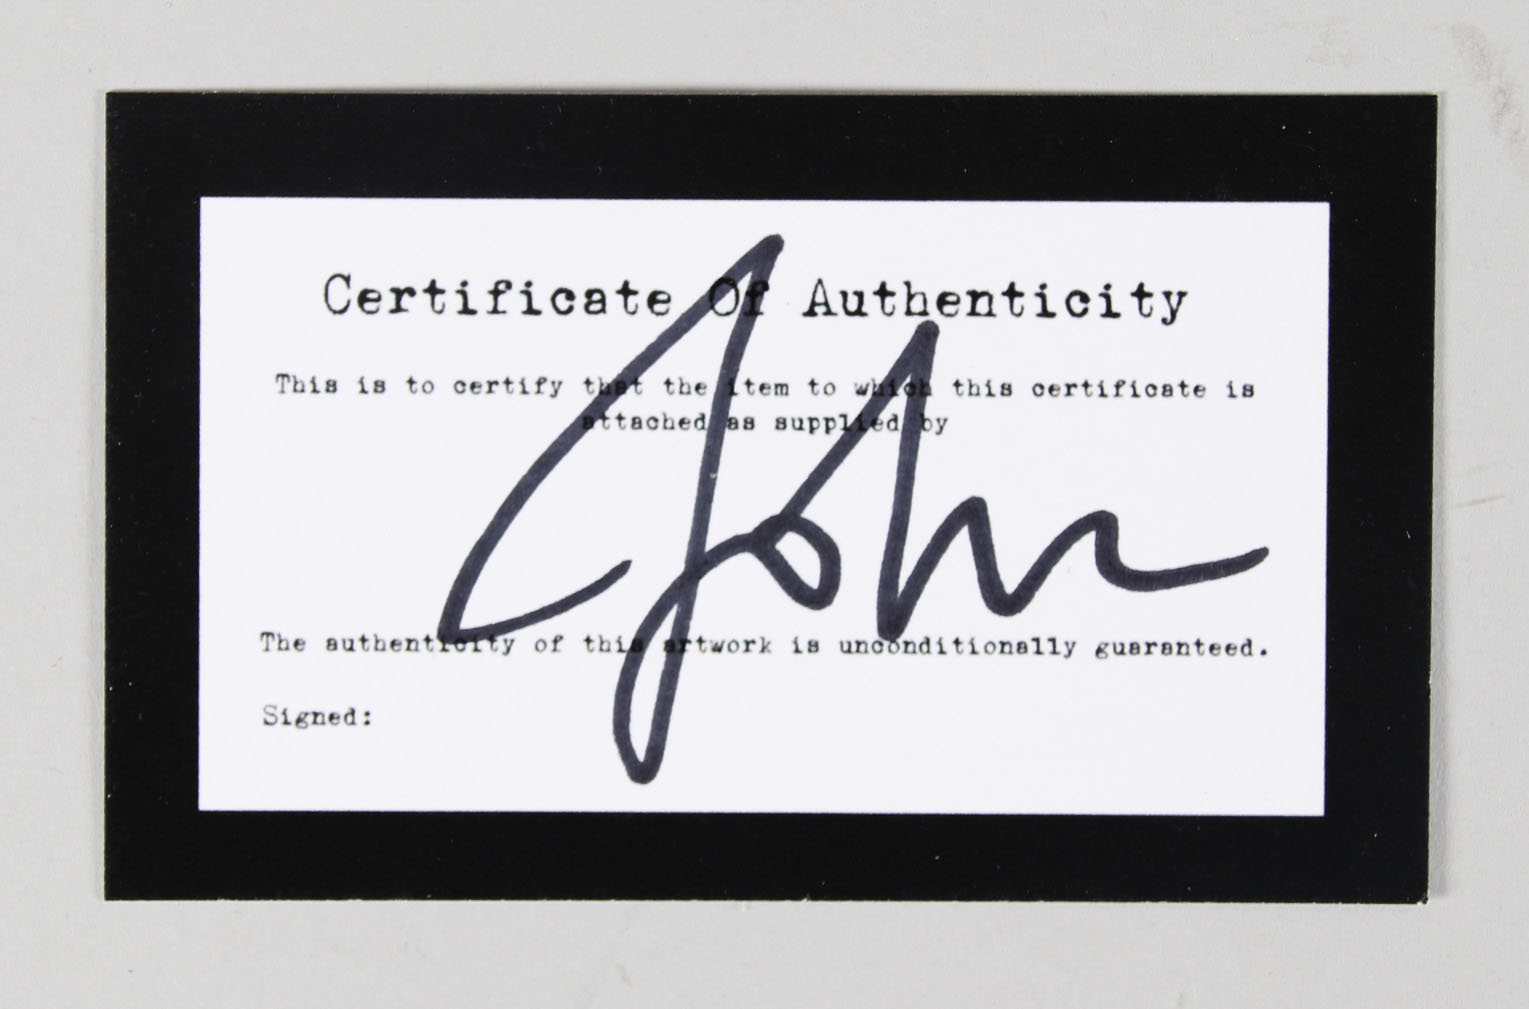 Certificate Of Authenticity
This is to certify that the item to which this certificate is
attached as supplied by
John
The authenticity of this artwork is unconditionally guaranteed.
Signed: